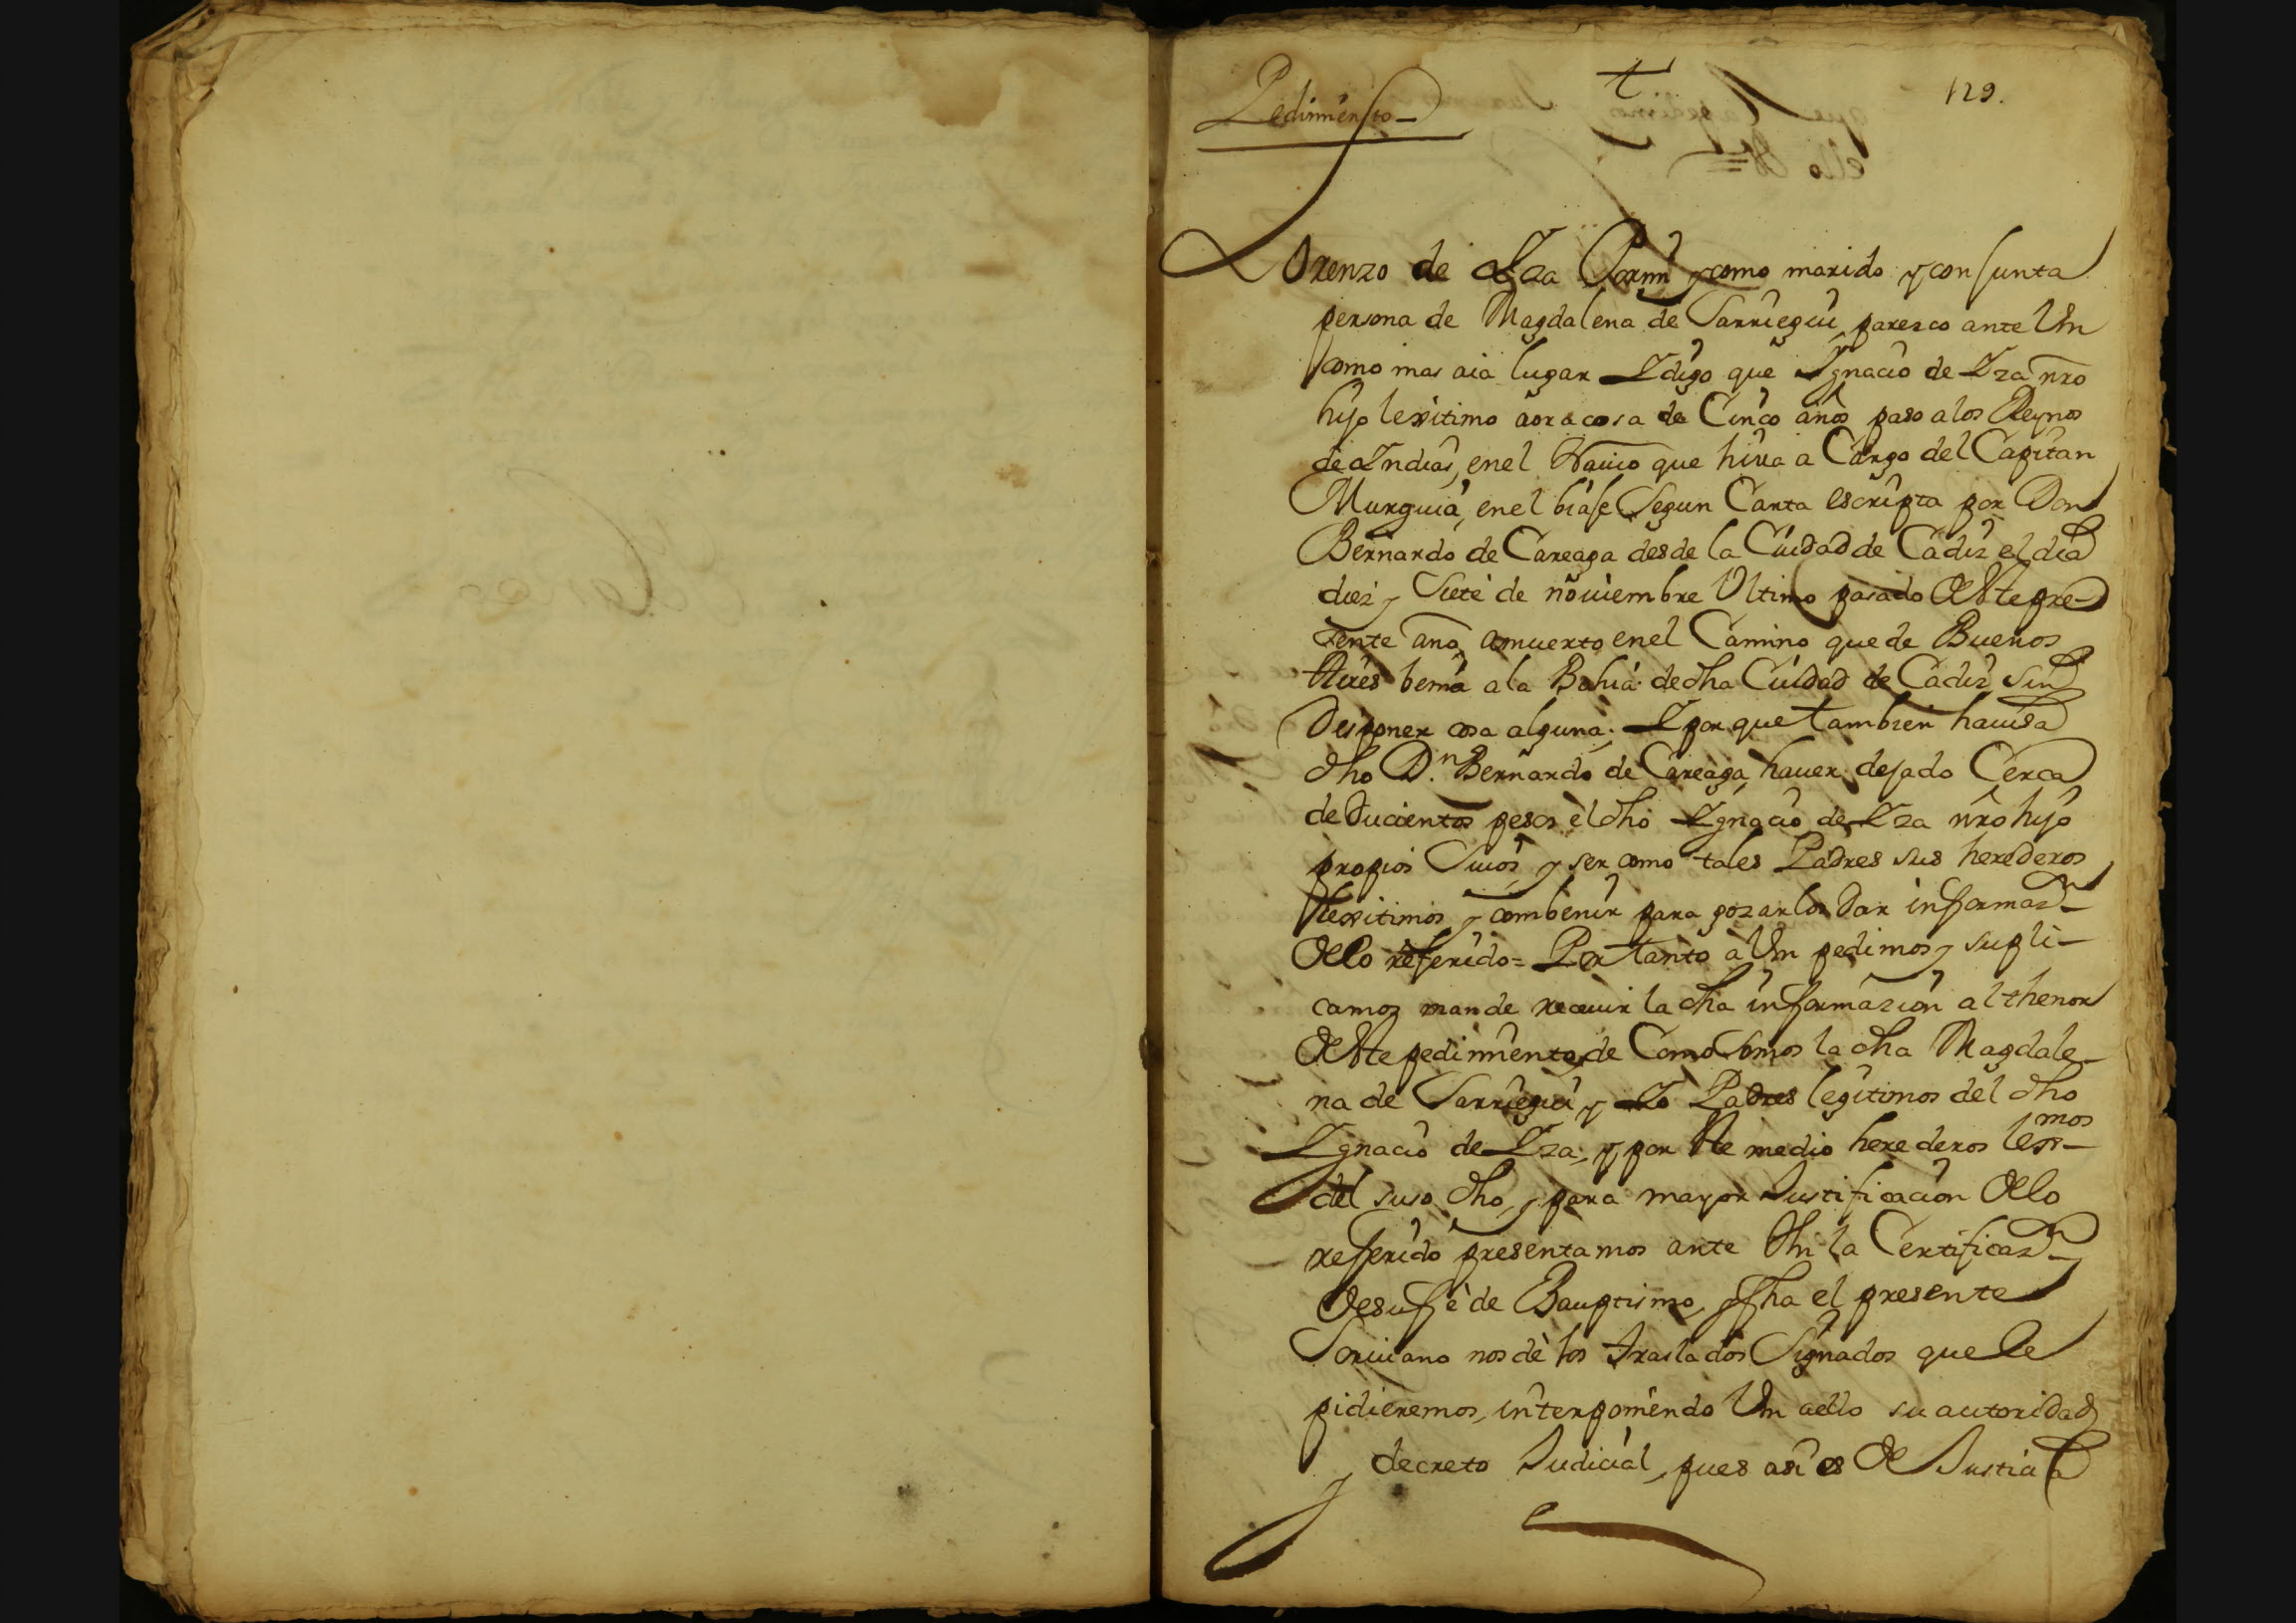 Pedimiento
129.
Lorenzo de Yza Por mi y como marido y conjunta
persona de Magdalena de Sarriegui paresco ante Vm
como mas aia lugar Y digo que Ygnacio de Yza nro
hijo lexitimo aora cosa de Cinco años paso a los Reynos
de Yndias, en el Nauio que hiua a Cargo del Capitan
Murguia, en el biaje Segun Carta escripta por Don
Bernardo de Careaga desde la Ciudad de Cadiz el dia
diez y Siete de nouiembre Vltimo pasado deste pre-
sente año, a muerto en el Camino que de Buenos
Aires benia a la Bahia de dha Ciudad de Cadiz sin
Disponer cosa alguna. Y por que tambien hauisa
dho D.n Bernardo de Careaga hauer dejado Cerca
de Ducientos pesos el dho Ygnacio de Yza nro hijo
propios Suios, y ser como tales Padres sus herederos
lexitimos y combenir para gozarlos Dar informazn
dello referido= Por tanto a Vm pedimos y supli-
camos mande receuir la dha informazion al thenor
deste pedimiento, de Como Somos la dha Magdale-
na de Sarriegui y Yo Padres legitimos del dho
Ygnacio de Yza, y por Ste medio herederos lexmos
del suso dho, y para mayor Justificacion dello
referido presentamos ante Vm la Certificazn
de su fe de Bauptismo, y fha el presente
Scriuano nos de los traslados Signados que le
pidieremos, interponiendo Vm aello su autoridad
y decreto Judicial, pues asi es de Justicia